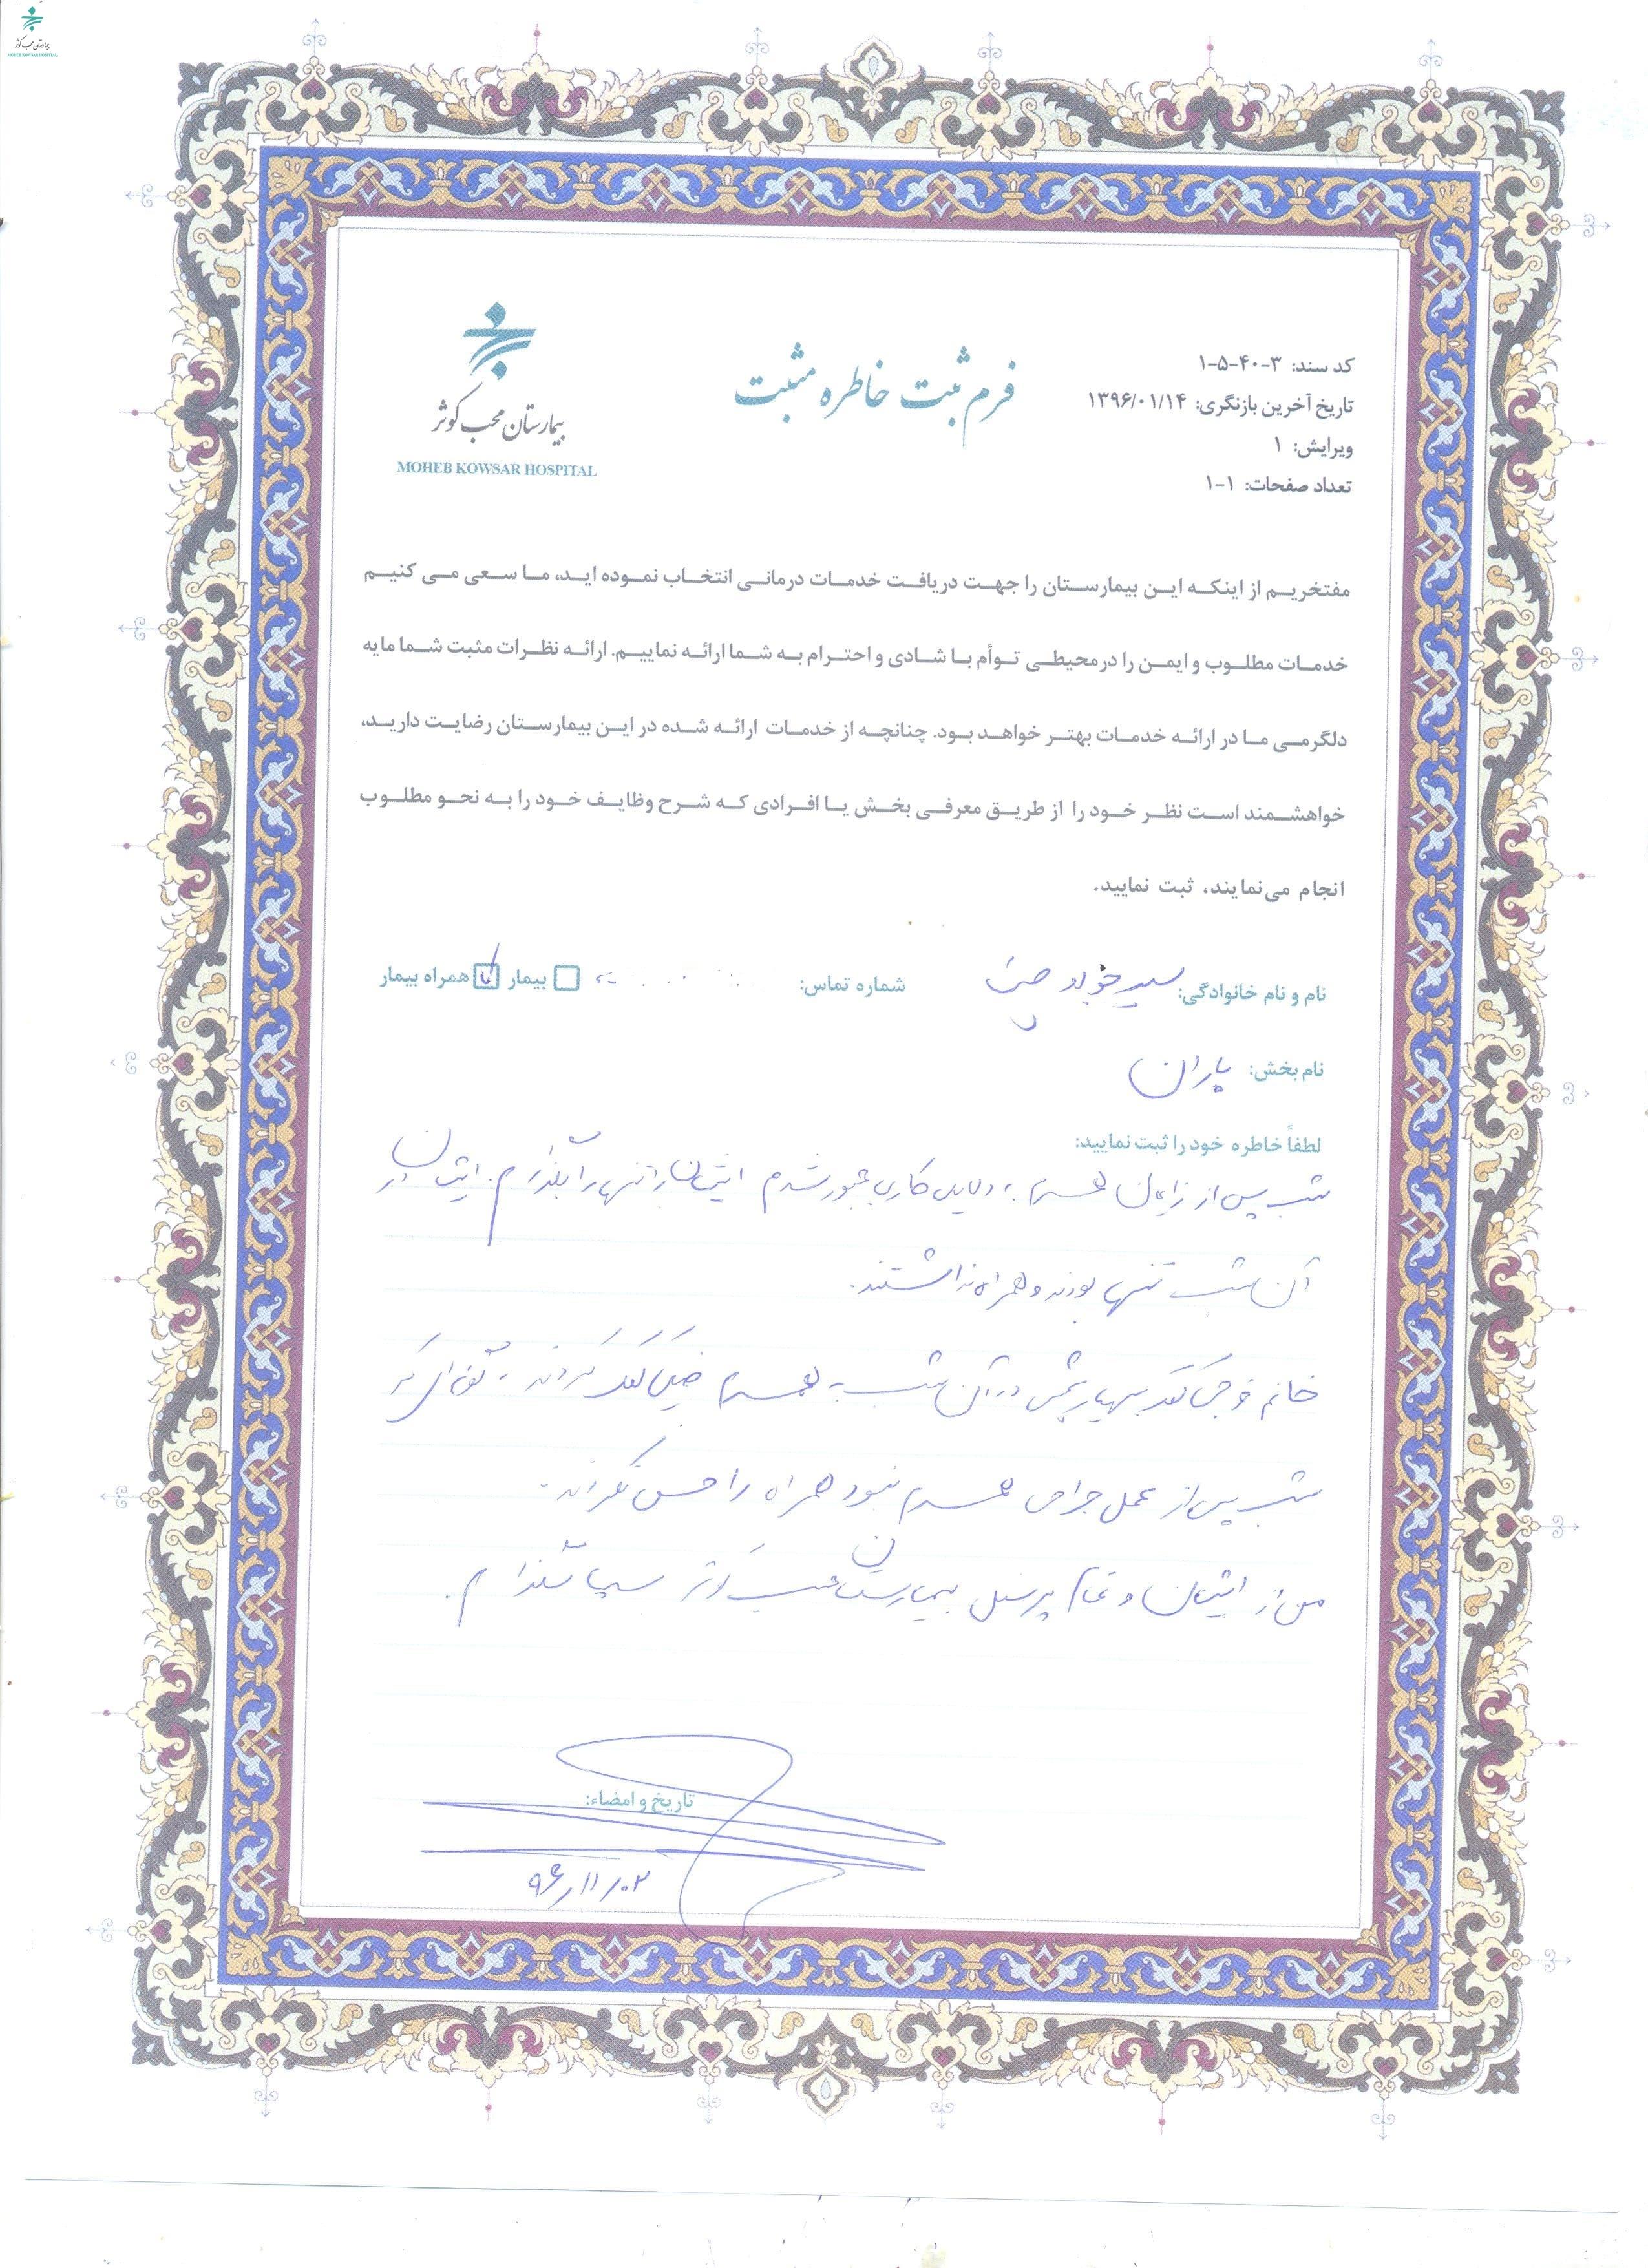 بیمارستان محب کوثر
MOHEB KOWSAR HOSPITAL
بیمارستان محب کوثر
MOHEB KOWSAR HOSPITAL
فرم ثبت خاطره مثبت
کد سند: ۳-۴۰-۵-۱
تاریخ آخرین بازنگری: ۱۳۹۶/۰۱/۱۴
ویرایش: ۱
تعداد صفحات: ۱-۱
مفتخریم از اینکه این بیمارستان را جهت دریافت خدمات درمانی انتخاب نموده اید، ما سعی می کنیم
خدمات مطلوب و ایمن را درمحیطی توأم با شادی و احترام به شما ارائه نماییم. ارائه نظرات مثبت شما مایه
دلگرمی ما در ارائه خدمات بهتر خواهد بود. چنانچه از خدمات ارائه شده در این بیمارستان رضایت دارید،
خواهشمند است نظر خود را از طریق معرفی بخش یا افرادی که شرح وظایف خود را به نحو مطلوب
انجام می‌نمایند، ثبت نمایید.
نام و نام خانوادگی: سید جواد شماره تماس: بیمار همراه بیمار
نام بخش: باران
لطفاً خاطره خود را ثبت نمایید:
شب پس از زایمان همسرم به دلایل کاری مجبور شدم ایشان را تنها بگذارم. ایشان در
آن شب تنها بودند و همراه نداشتند.
خانم کمک بهیار بخش در آن شب به همسرم خیلی کمک کردند به گونه ای که
شب پس از عمل جراحی همسرم نبود همراه را حس نکردند.
من از ایشان و تمام پرسنل بیمارستان محب کوثر سپاسگذارم.
تاریخ و امضاء:
۹۶/۱۱/۰۲